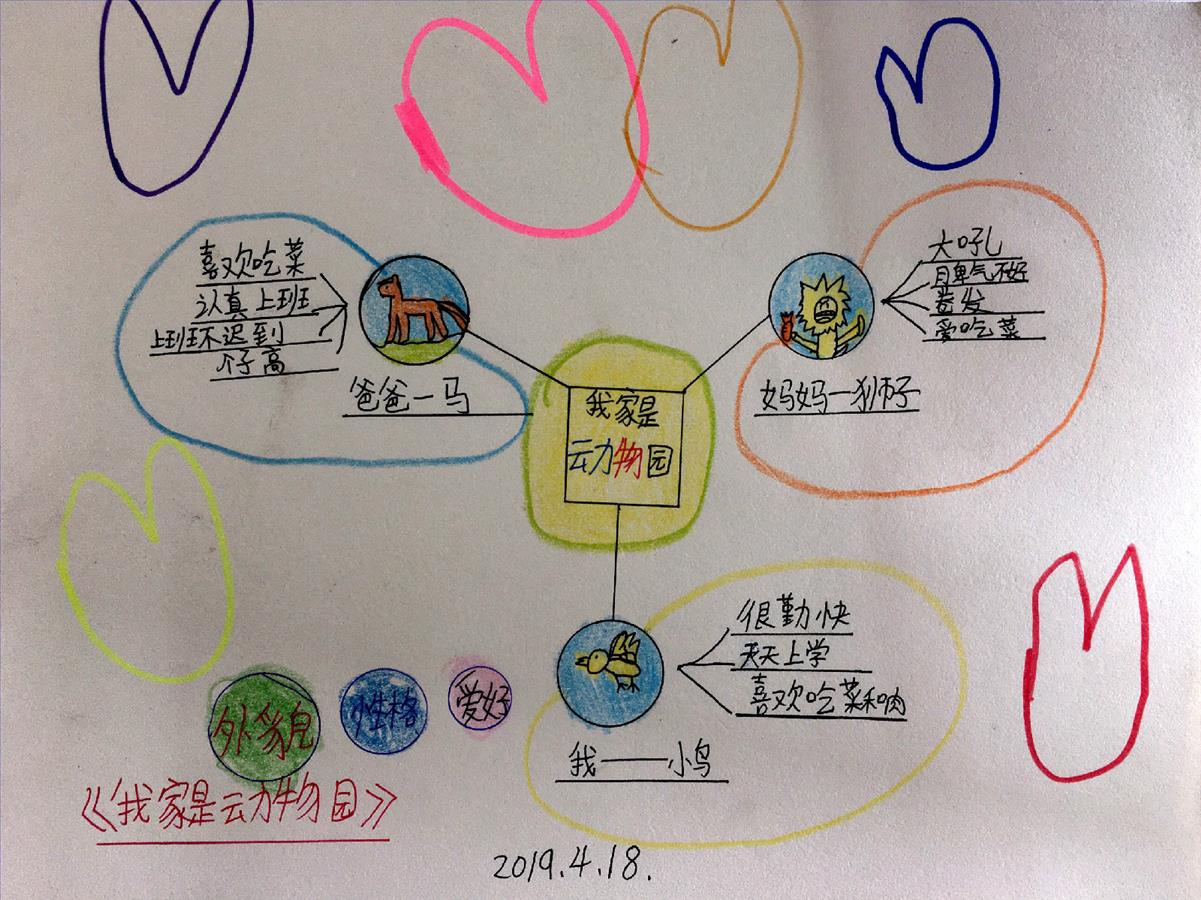 喜欢吃菜
认真上班
上班不迟到
个子高
爸爸一马
大吼
脾气不好
卷发
爱吃菜
妈妈一狮子
我家是
动物园
很勤快
天天上学
喜欢吃菜和肉
我——小鸟
外貌
性格
爱好
《我家是动物园》
2019.4.18.